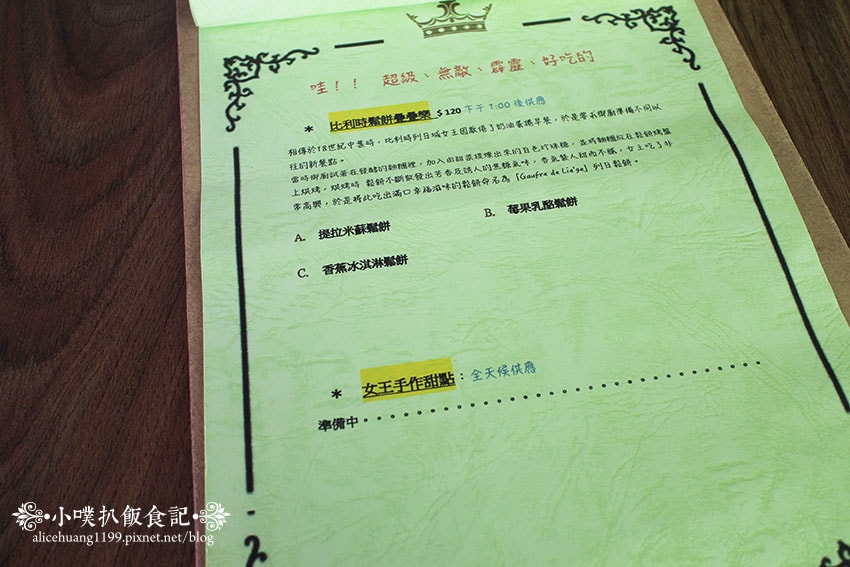 哇!! 超級、無敵、霹靂、好吃的
* 比利時鬆餅疊疊樂 $120 下午1:00後供應
相傳於18世紀中葉時,比利時列日城女王因厭倦了奶油蛋捲早餐,於是要求御廚準備不同以
往的新餐點。
當時御廚試著在發酵的麵糰裡,加入由甜菜提煉出來的白色珍珠糖,並將麵糰放在鬆餅烤盤
上烘烤,烘烤時 鬆餅不斷散發出芳香及誘人的焦糖氣味,香氣襲人甜而不膩,女王吃了非
常高興,於是將此吃出滿口幸福滋味的鬆餅命名為「Gaufre de Lie'ge」列日鬆餅。
A. 提拉米蘇鬆餅 B. 莓果乳酪鬆餅
C. 香蕉冰淇淋鬆餅
* 女王手作甜點: 全天候供應
準備中・・・・・・・・・・・・・・・・・・・・・・・・・・・・・・
小噗扒飯食記
alicehuang1199.pixnet.net/blog